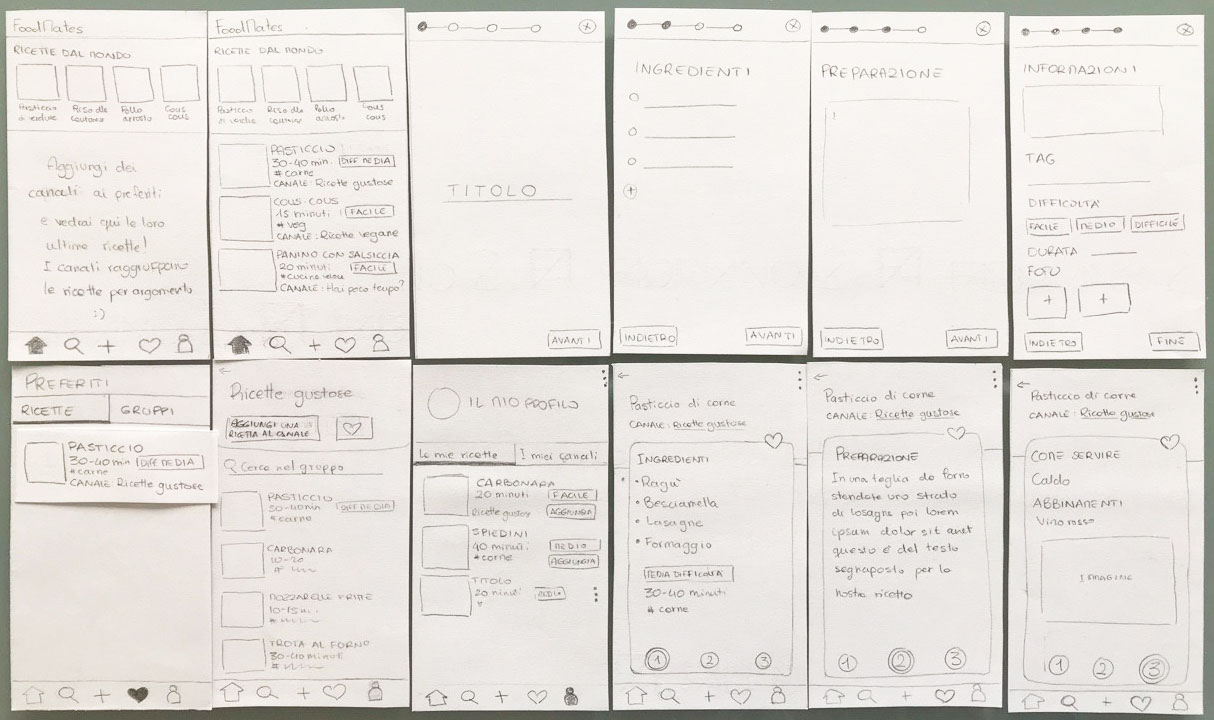 FoodMates
RICETTE DAL MONDO
Pasticcio
di verdure
Riso alla
cantonese
Pollo
arrosto
Cous
cous
Aggiungi dei
canali ai preferiti
e vedrai qui le loro
ultime ricette!
I canali raggruppano
le ricette per argomento
:)
FoodMates
RICETTE DAL MONDO
Pasticcio
di verdure
Riso alla
cantonese
Pollo
arrosto
Cous
cous
PASTICCIO
30-40 min. DIFF MEDIA
# carne
CANALE: Ricette gustose
COUS COUS
15 minuti FACILE
# veg
CANALE: Ricette vegane
PANINO CON SALSICCIA
20 minuti FACILE
CANALE: Hai poco tempo?
TITOLO
AVANTI
INGREDIENTI
+
INDIETRO
AVANTI
PREPARAZIONE
INDIETRO
AVANTI
INFORMAZIONI
TAG
DIFFICOLTA'
FACILE MEDIO DIFFICILE
DURATA
FOTO
+ +
INDIETRO
FINE
PREFERITI
RICETTE GRUPPI
PASTICCIO
30-40 min DIFF MEDIA
# carne
CANALE Ricette gustose
Ricette gustose
AGGIUNGI UNA
RICETTA AL CANALE
Cerca nel gruppo
PASTICCIO
30-40min DIFF MEDIA
# carne
CARBONARA
10-20
#
MOZZARELLE FRITTE
10-15
#
TROTA AL FORNO
30-40 minuti
#
IL MIO PROFILO
Le mie ricette I miei canali
CARBONARA
20 minuti FACILE
Ricette gustose AGGIUNGI A
SPIEDINI
40 minuti MEDIO
# carne AGGIUNGI A
TITOLO
20 minuti MEDIO
Pasticcio di carne
CANALE: Ricette gustose
INGREDIENTI
• Ragu'
• Besciamella
• Lasagne
• Formaggio
MEDIA DIFFICOLTA'
30-40 minuti
# carne
1 2 3
Pasticcio di carne
CANALE: Ricette gustose
PREPARAZIONE
In una teglia da forno
stendete uno strato
di lasagne poi lorem
ipsum dolor sit amet
questo è del testo
segnaposto per la
nostra ricetta
1 2 3
Pasticcio di carne
CANALE: Ricette gustose
COME SERVIRE
Caldo
ABBINAMENTI
Vino rosso
IMMAGINE
1 2 3